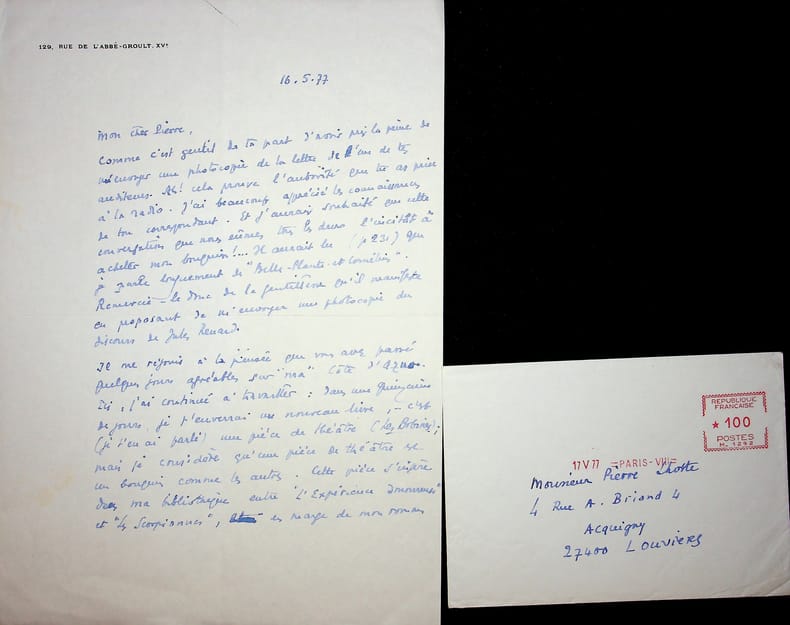 129, RUE DE L'ABBÉ-GROULT. XVᵉ
16.5.77
Mon cher Pierre,
Comme c'est gentil de ta part d'avoir pris la peine de
m'envoyer une photocopie de la lettre de l'un de tes
auditeurs. Ah! cela prouve l'autorité que tu as prise
à la radio. J'ai beaucoup apprécié les connaissances
de ton correspondant. Et j'aurais souhaité que cette
conversation que nous eûmes tous les deux l'incitât à
acheter mon bouquin!... Il aurait lu (p 231) que
je parle longuement de "Belle-Plante et Cornélius".
Remercie-le donc de la gentillesse qu'il manifeste
en proposant de m'envoyer une photocopie du
discours de Jules Renard.
Je me réjouis à la pensée que vous avez passé
quelques jours agréables sur "ma" Côte d'Azur.
Ici, j'ai continué à travailler: dans une quinzaine
de jours, je t'enverrai un nouveau livre, - c'est
(je t'en ai parlé) une pièce de théâtre (Les Bobines);
mais je considère qu'une pièce de théâtre est
un bouquin comme les autres. Cette pièce s'insère
dans ma bibliothèque entre "L'Expérience Amoureuse"
et "Les Scorpionnes", en marge de mon roman
REPUBLIQUE
FRANCAISE
★ 100
POSTES
17 V 77 PARIS-VIII
Monsieur Pierre Lhoste
4 Rue A. Briand 4
Acquigny
27400 Louviers